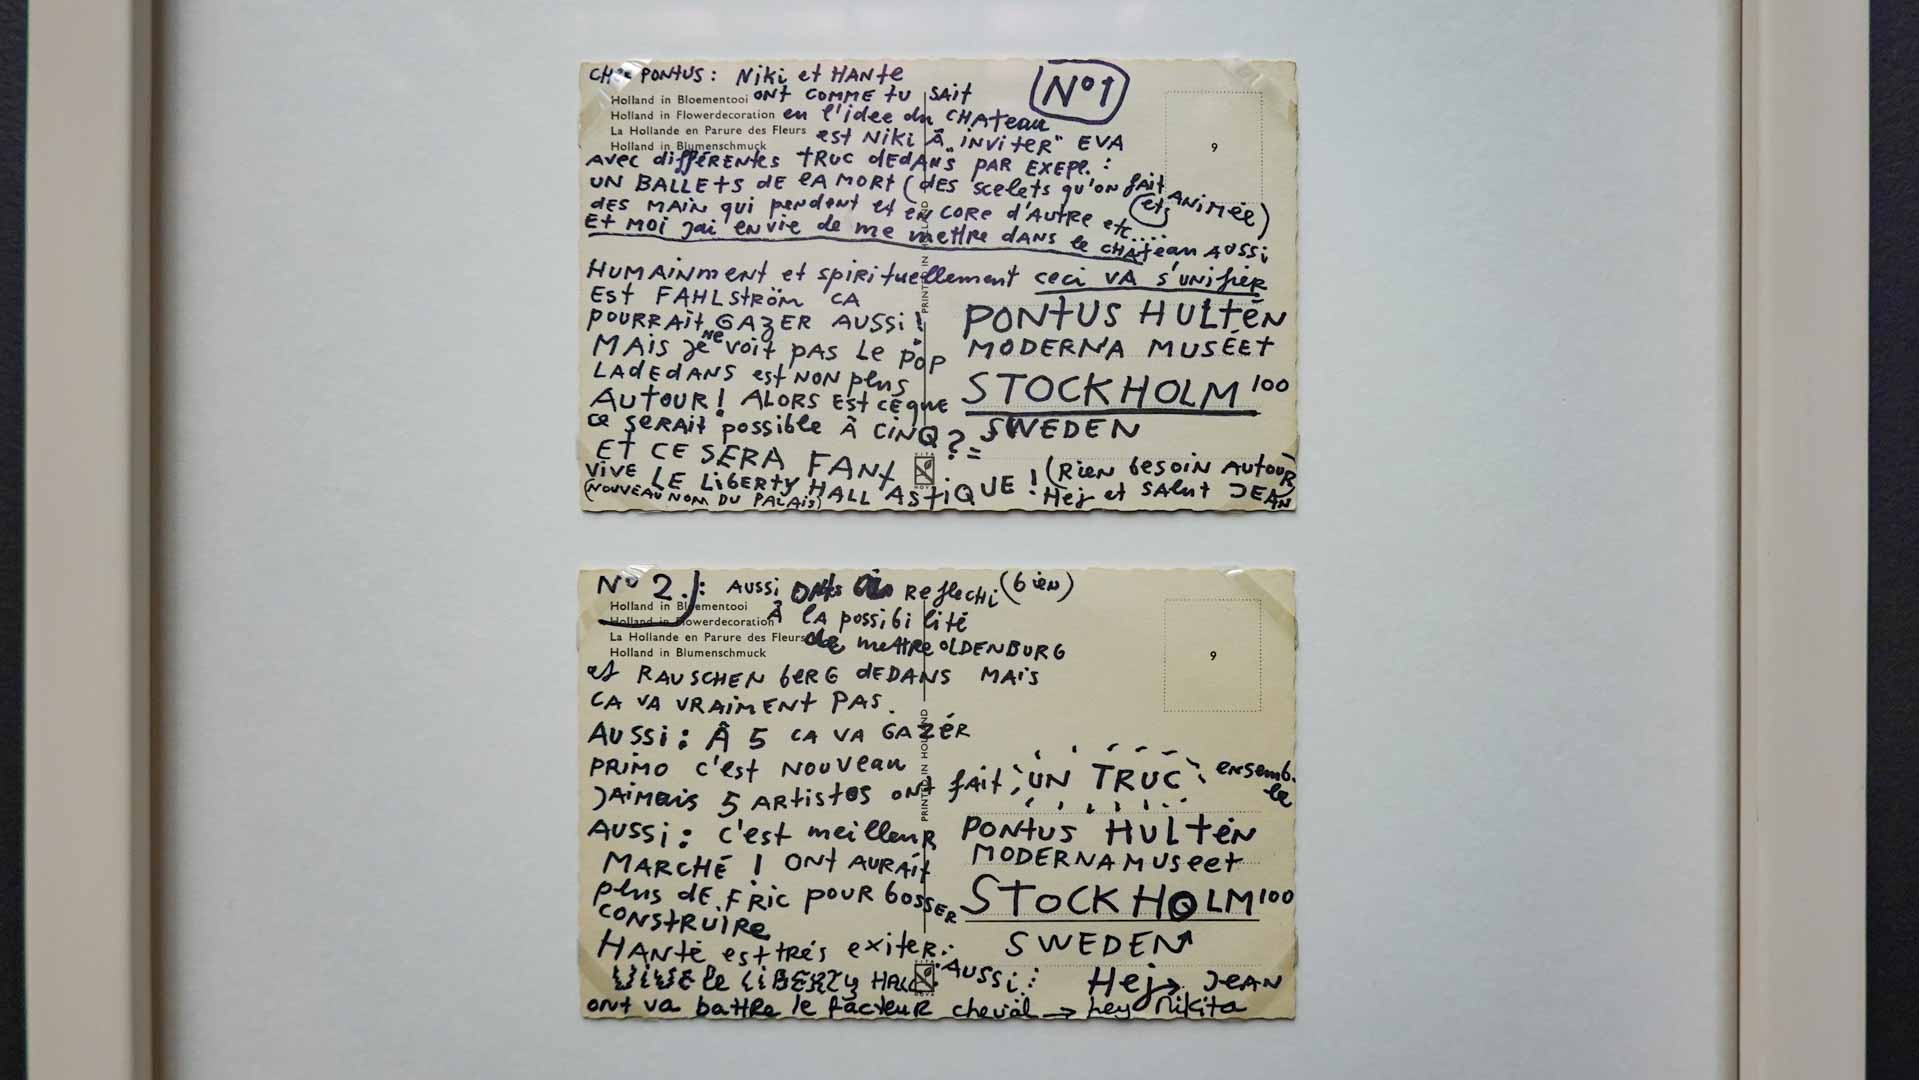 CHER PONTUS : Niki et HANTE
N° 1
ONT COMME TU SAIT
Holland in Bloementooi
Holland in Flowerdecoration
La Hollande en Parure des Fleurs
Holland in Blumenschmuck
en l'idee du CHATEAU
est NIKI Â „INVITER" EVA
9
AVEC différentes TRUC DEDANS PAR EXEPL. :
UN BALLETS DE LA MORT (DES scelets qu'on fait ANIMÉE)
DES MAIN qui pendent et ENCORE d'AUTRE etc....
(ets
ET MOI jai envie de me mettre DANS le CHATEAU AUSSI
HUMAINMENT et spirituellement ceci VA s'unifier
EST FAHLSTRÖM CA
POURRAIT GAZER AUSSI !
MAIS je NE VOIT PAS LE POP
LADEDANS est NON plus
AUTOUR ! ALORS EST CEQUE
ce SERAIT possible À CINQ ? =
ET CE SERA FANT
ASTIQUE !
VIVE LE LIBERTY HALL
(NOUVEAU NOM DU PALAIS)
PRINTED IN HOLLAND
PONTUS HULTÉN
MODERNA MUSÉET
STOCKHOLM 100
SWEDEN
(RIEN besoin AUTOUR)
Hej et SALUT JEAN
N° 2.) : AUSSI
REFLECHI (bien)
Holland in Bloementooi
Holland in Flowerdecoration
La Hollande en Parure des Fleurs
Holland in Blumenschmuck
À LA possibilité
de mettre OLDENBURG
9
et RAUSCHENBERG DEDANS MAIS
CA VA VRAIMENT PAS.
AUSSI : Â 5 CA VA GAZÉR
PRIMO C'est NOUVEAU
JAIMAIS 5 ARTISTES ONT fait UN TRUC ensemb. le
AUSSI : C'est meilleuR
MARCHÉ ! ONT AURAIT
plus dE FRIC POUR BOSSER
CONSTRUIRE
HANTÉ est trés exiter :
VIVE le LIBERTY HALL
AUSSI :
ONT VA bATTRE le FACTEUR cheval → hey Nikita
PRINTED IN HOLLAND
PONTUS HULTÉN
MODERNA MUSEET
STOCKHOLM 100
SWEDEN
Hej → JEAN